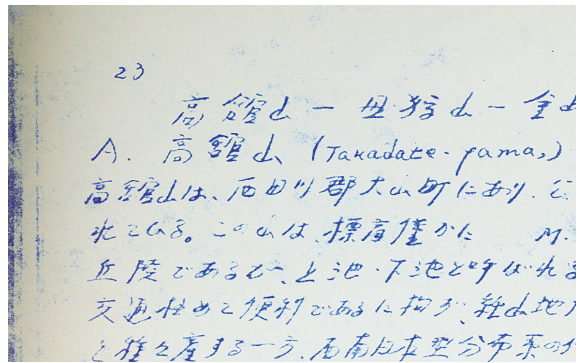 23
高舘山 — 母狩山 — 金
A. 高舘山 (Takadate-yama,)
高舘山は、西田川郡大山町にあり、公
れている。この山は標高僅かに M.
丘陵であるが、上池・下池と呼ばれる
交通極めて便利であるに拘が、種山地
と種々産する一方、